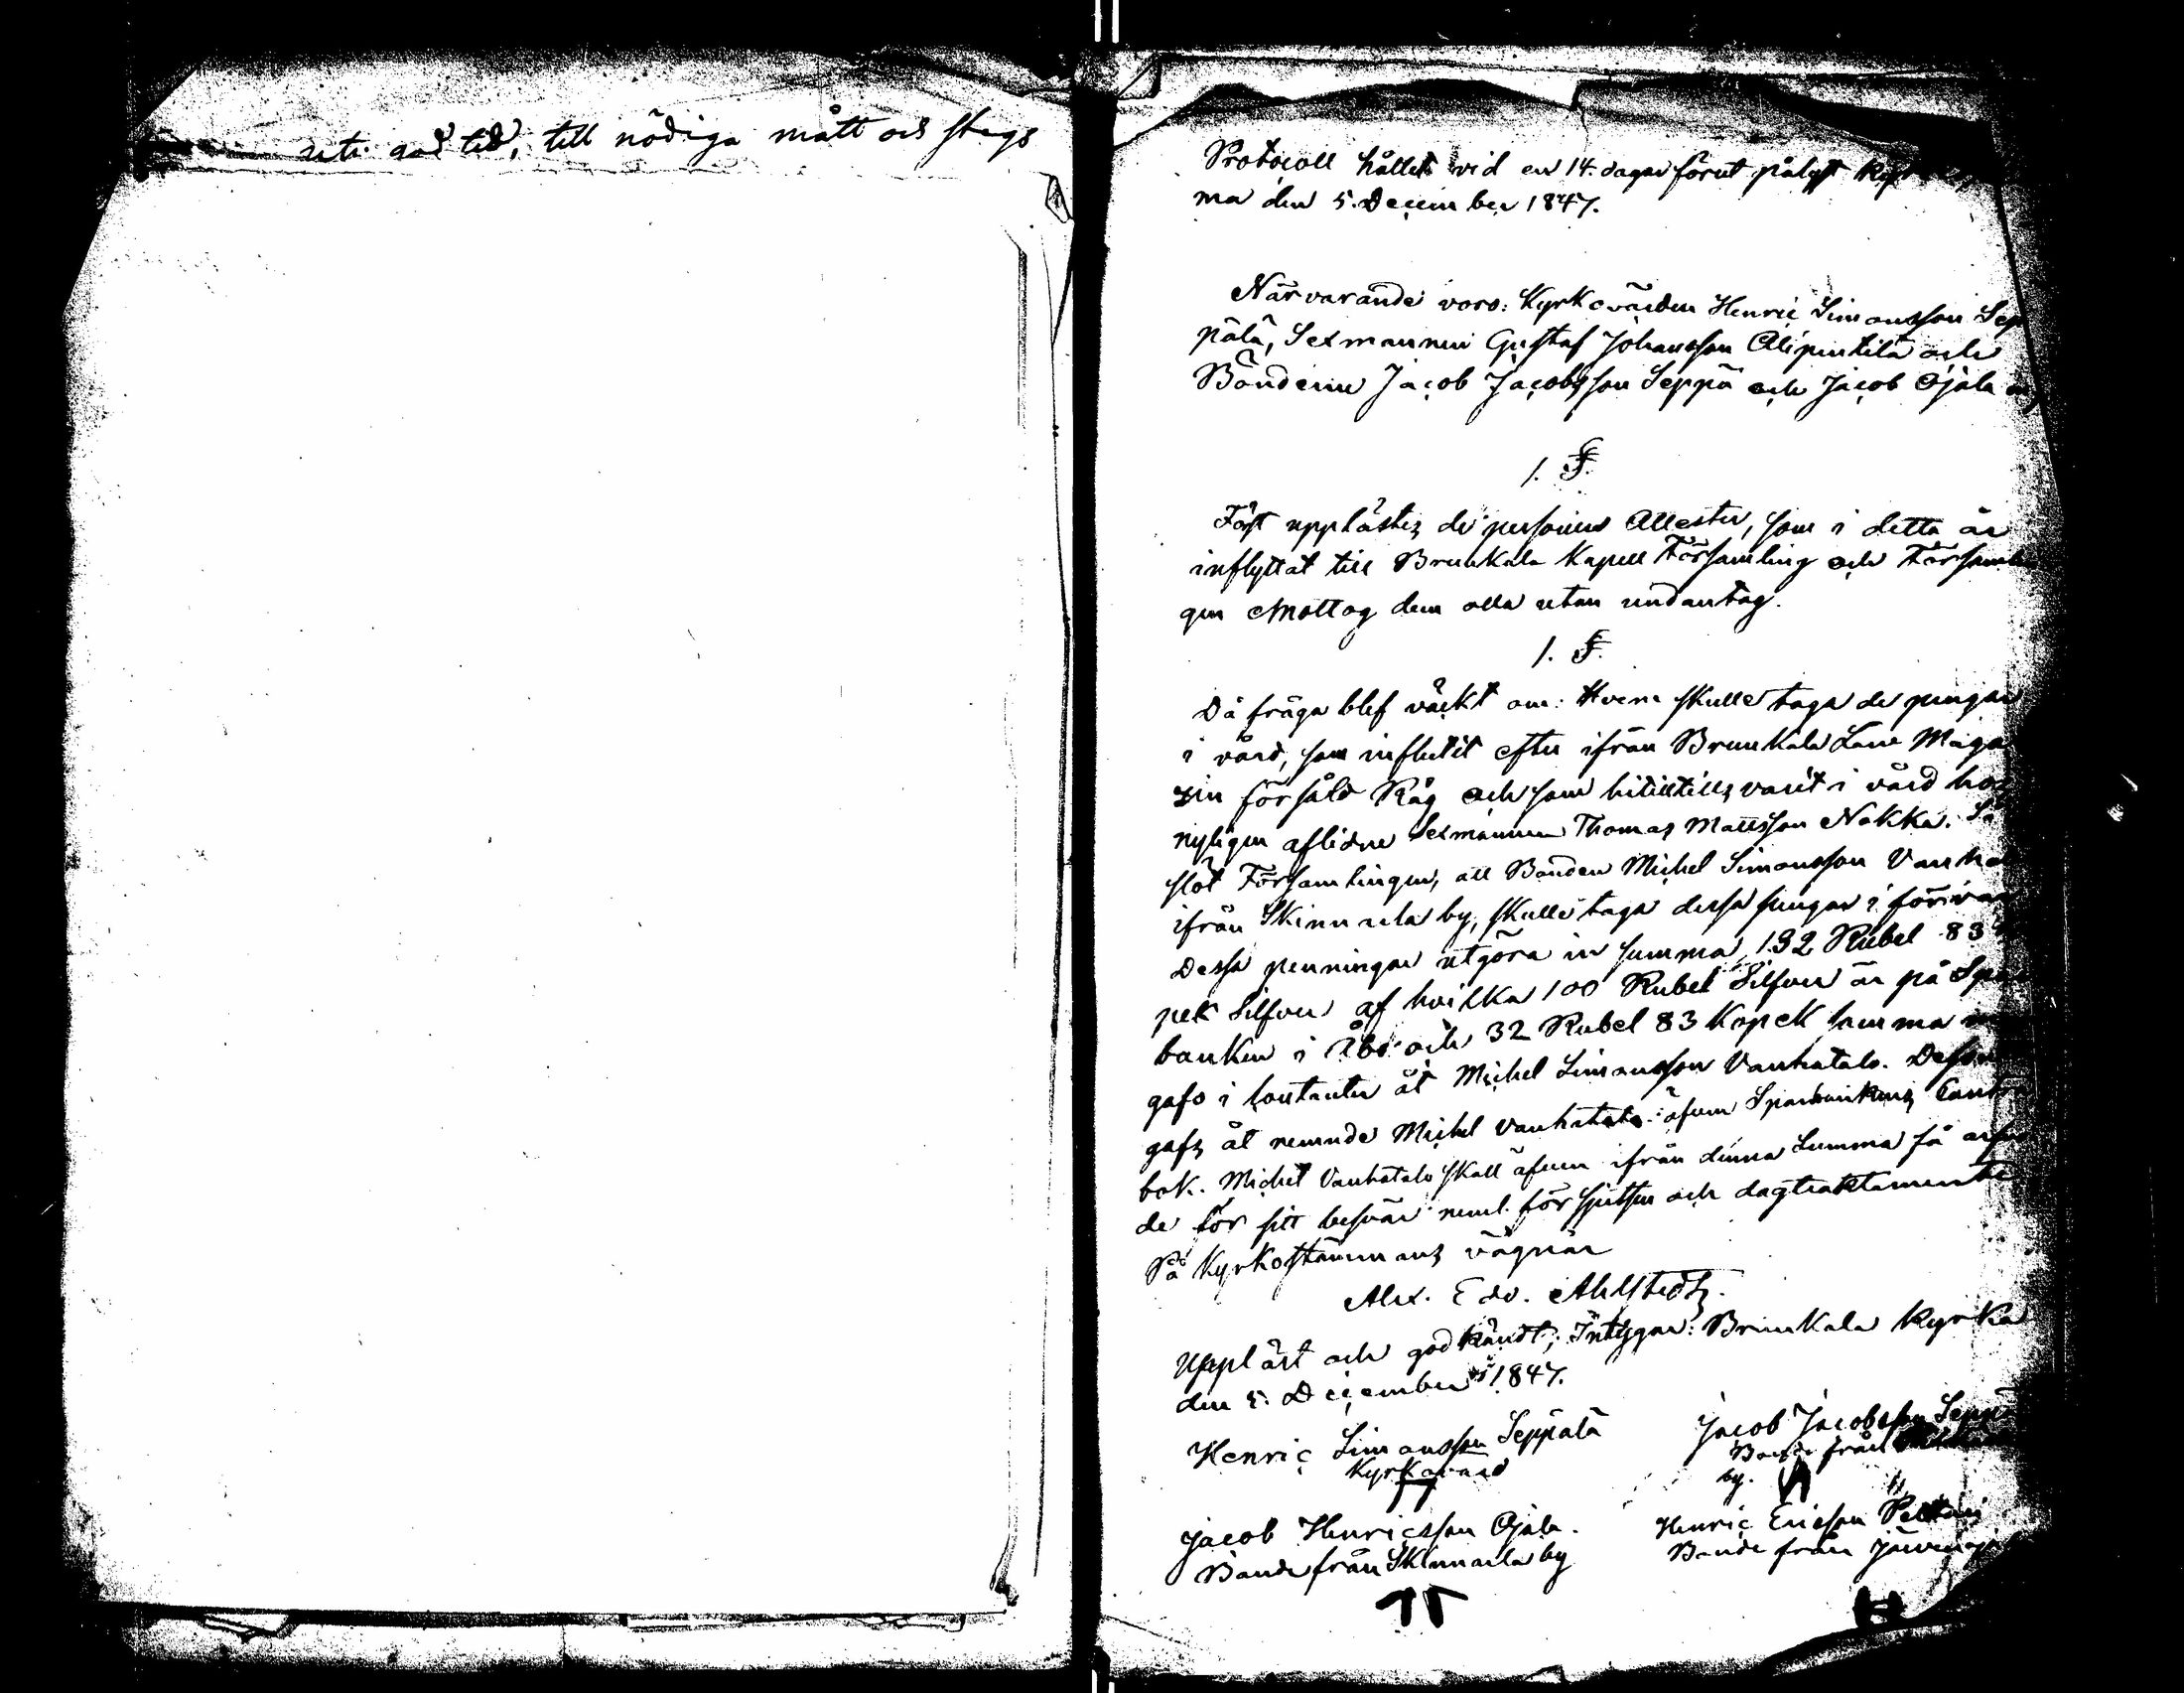 god tid, till nödiga mått och stegs
Protocoll hållet vid en 14. dagar förut pålyst
ma den 5. December 1847.
Närvarande voro: Kyrkovärden Henric Simonsson Sep
pälä, Sexmannen Gustaf Johansson Alipentilä och
Bönderne Jacob Jacobsson Seppä och Jacob Ojala
1. §.
Först upplästes de personers Attester, som i detta år
inflyttat till Brunkala Kapell Församling och Församlin
gen Mottog dem alla utan undantag.
1. §.
Då fråga blef väckt om: Hvem skulle taga de pengar
i vård, som influtit efter ifrån Brunkala Låne Maga
zin försåld Råg och som hitintills varit i vård hos
nyligen aflidne Sexmannen Thomas Mattsson Nokka. Så
slöt Församlingen, att Bonden Michel Simonsson Vanhat
ifrån Skinnarla by, skulle taga dessa pengar i förvar
Dessa penningar utgöra en summa 132 Rubel 83
pek Silfver af hvilka 100 Rubel Silfver är på Spar
banken i Åbo och 32 Rubel 83 Kopek samma
gafs i contanter åt Michel Simonsson Vanhatalo.
gafs åt nemnde Michel Vanhatalo: äfven Sparbankens Cont
bok. Michel Vanhatalo skall äfven ifrån denna Summa få
de för sitt besvär neml. för skjutsen och dagtraktamente
På Kyrkostämmans vägnar
Alex. Edv. Ahlstedt.
Uppläst och godkändt; Intygar: Brunkala Kyrka
den 5. December 1847.
Henric Simonsson Seppälä
Kyrkovärd
Jacob Jacobsson Seppä
Bonde från
by.
Jacob Henricsson Ojala.
Bonde från Skinnarla by
Henric Ericsson
Bonde från